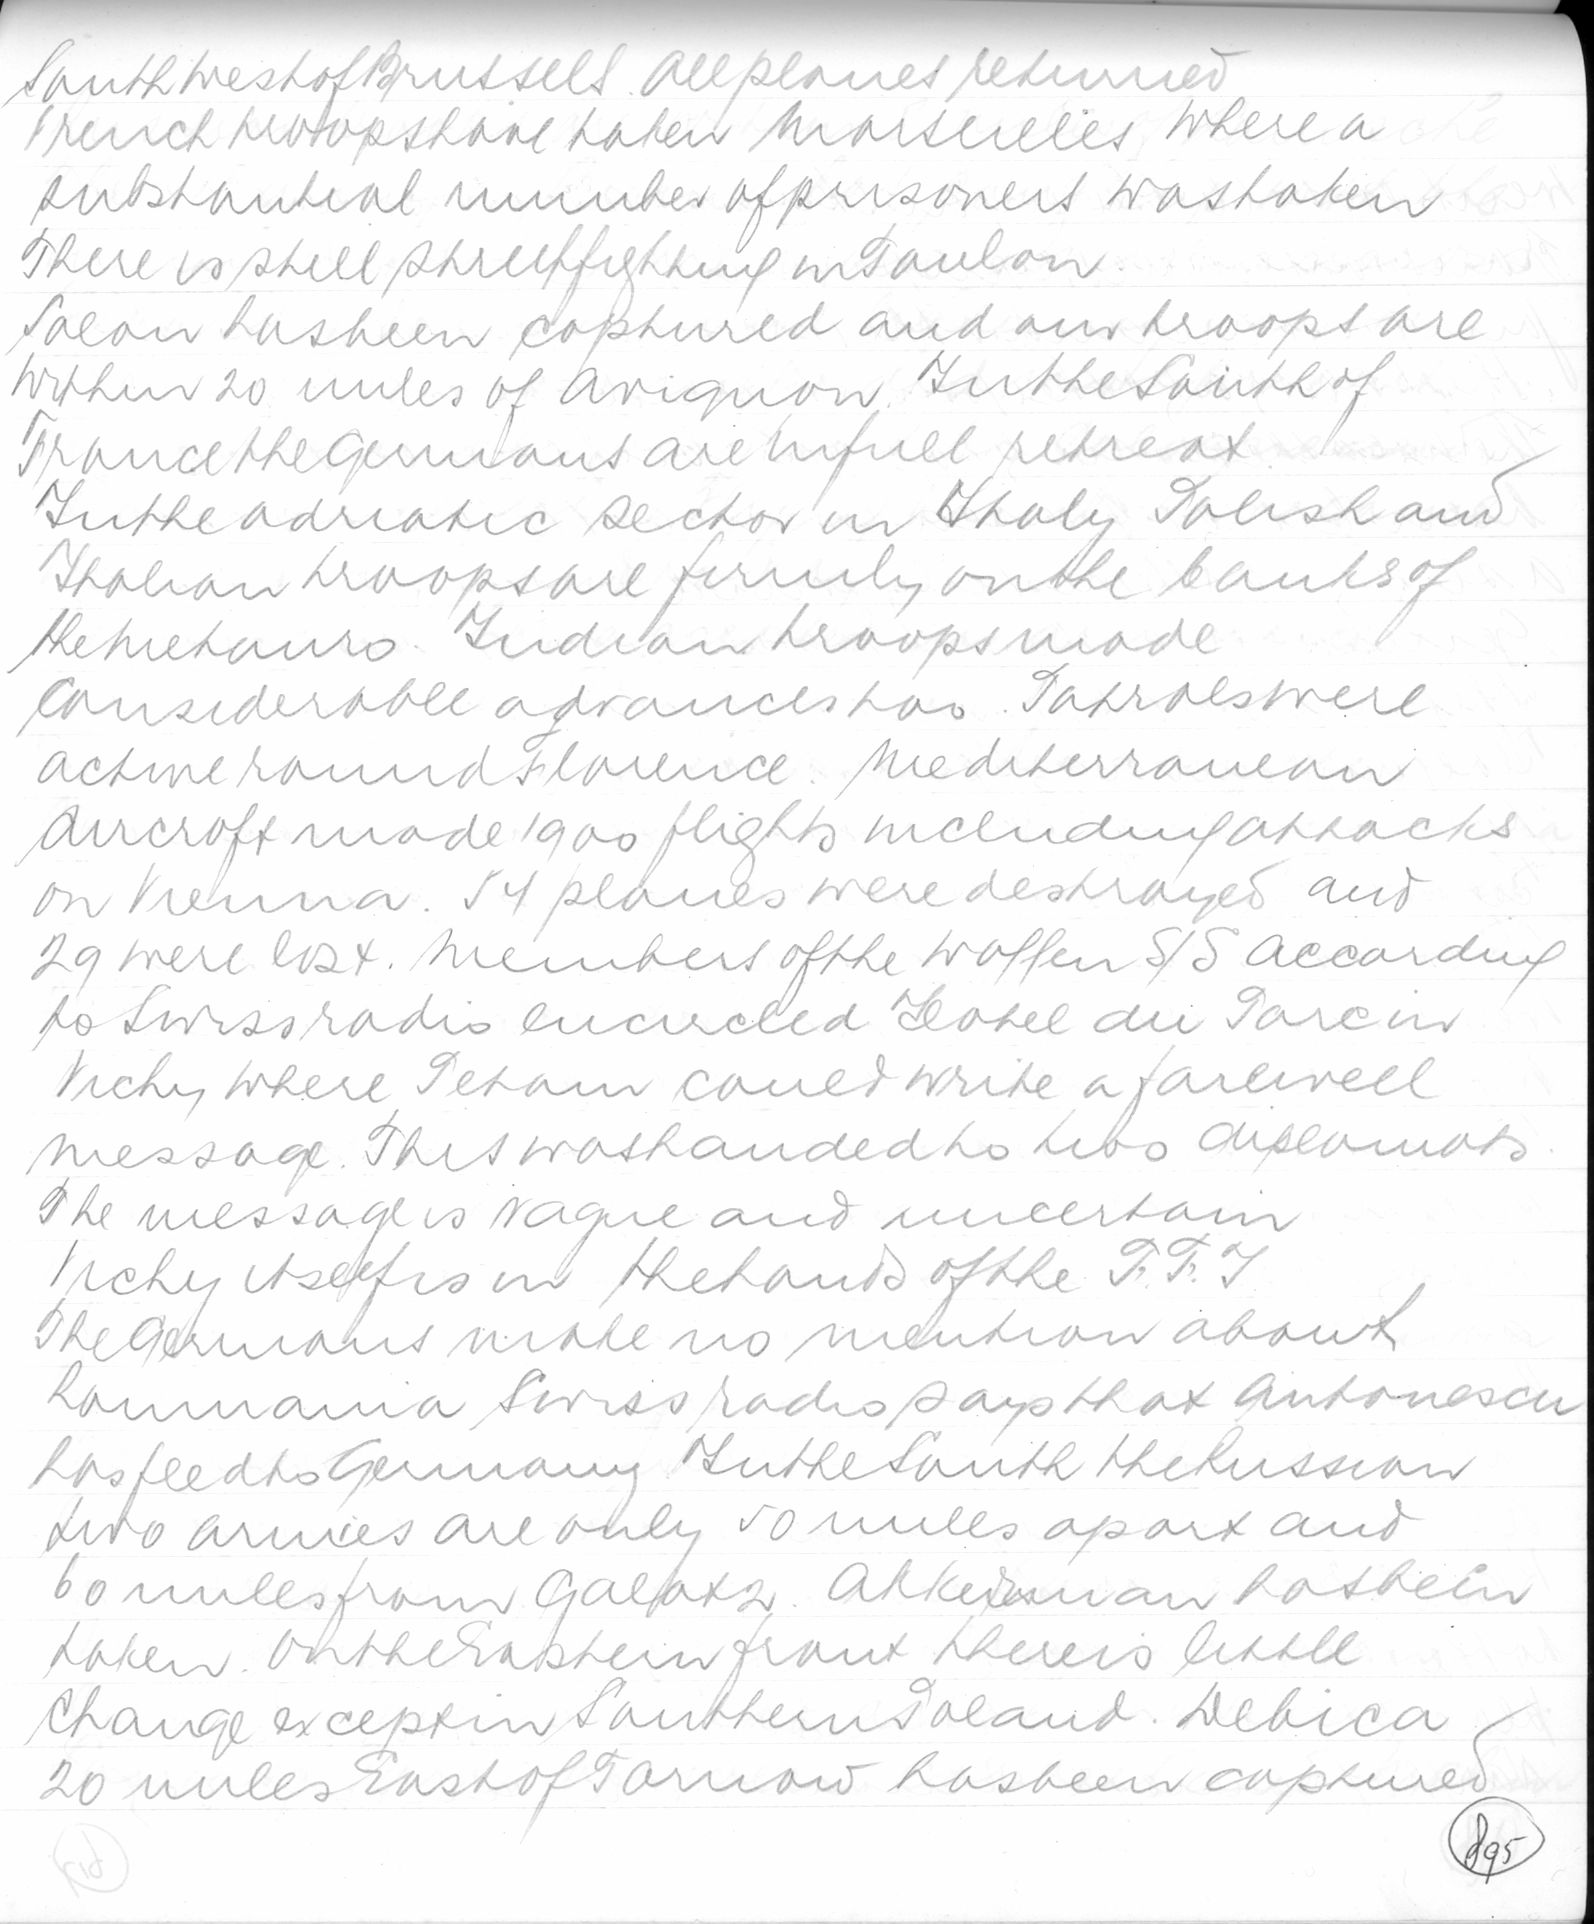 South West of Brussels. All planes returned
French troops have taken Marseilles where a
substantial number of prisoners was taken
There is still streetfighting in Toulon.
Salon has been captured and our troops are
within 20 miles of Avignon. In the South of
France the Germans are in full retreat.
In the Adriatic sector in Italy Polish and
Italian troops are firmly on the banks of
the Metauro. Indian troops made
considerable advances too. Patrols were
active round Florence. Mediterranean
Aircraft made 1900 flights including attacks
on Vienna. 54 planes were destroyed and
29 were lost. Members of the Waffen S/S according
to Swiss radio encircled Hotel du Parc in
Vichy where Petain could write a farewell
message. This was handed to two diplomats.
The message is vague and uncertain
Vichy itself is in the hands of the F.F.I
The Germans make no mention about
Roumania Swiss radio says that Antonescu
has fleed to Germany In the South the Russian
two armies are only 50 miles apart and
60 miles from Galatz. Akkerman has been
taken. On the Eastern front there is little
change except in Southern Poland. Debica
20 miles East of Tarnow has been captured